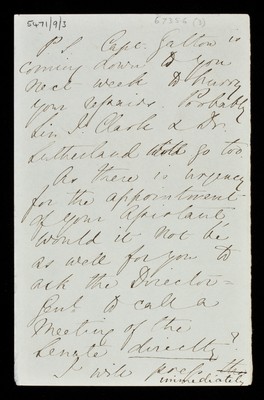 5471/9/3
67386 (3)
P.S. Capt. Galton is
coming down to you
next week to hurry
your repairs. Probably
Sir J. Clark & Dr.
Sutherland will go too.
As there is urgency
for the appointment
of your Assistant,
would it not be
as well for you to
ask the Director-
Genl. to call a
Meeting of the
Senate directly?
I will press the
immediately